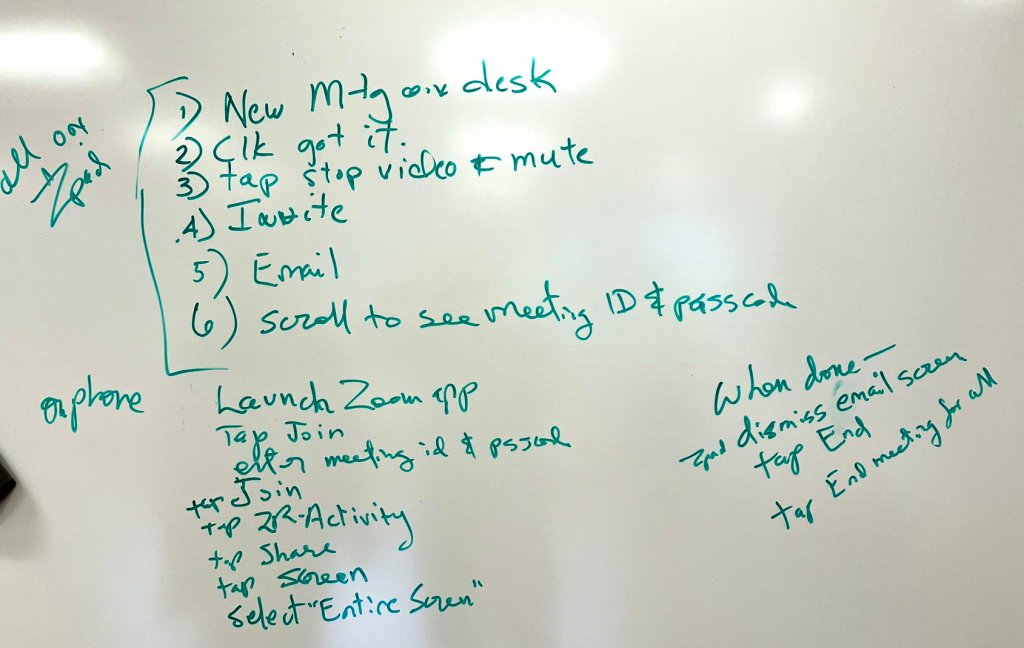 all on
Zpad
1) New Mtg on desk
2) Clk got it.
3) tap stop video & mute
4) Invite
5) Email
6) scroll to see meeting ID & passcode
on phone
Launch Zoom app
Tap Join
enter meeting id & psscod
tap Join
tap ZR-Activity
tap Share
tap Screen
Select "Entire Screen"
When done —
Zpad dismiss email screen
tap End
tap End meeting for all